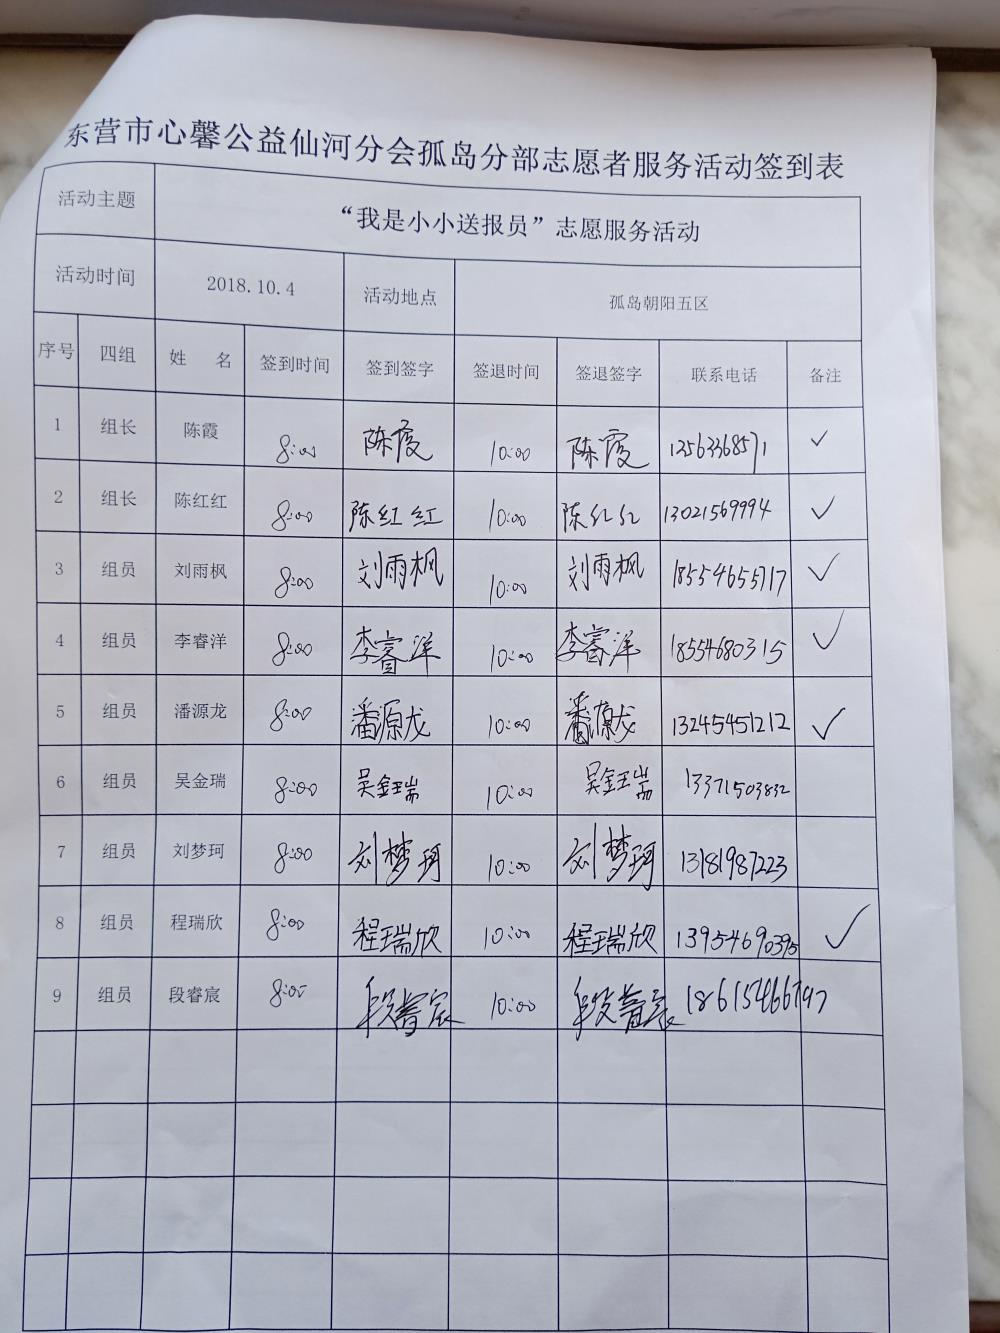 东营市心馨公益仙河分会孤岛分部志愿者服务活动签到表
活动主题 “我是小小送报员”志愿服务活动
活动时间 2018.10.4 活动地点 孤岛朝阳五区
序号 四组 姓 名 签到时间 签到签字 签退时间 签退签字 联系电话 备注
1 组长 陈霞 8:00 陈霞 10:00 陈霞 13563368571 ✓
2 组长 陈红红 8:00 陈红红 10:00 陈红红 13021569994 ✓
3 组员 刘雨枫 8:00 刘雨枫 10:00 刘雨枫 18554655717 ✓
4 组员 李睿洋 8:00 李睿洋 10:00 李睿洋 18554680315 ✓
5 组员 潘源龙 8:00 潘源龙 10:00 潘源龙 13245451212 ✓
6 组员 吴金瑞 8:00 吴金瑞 10:00 吴金瑞 13371503832
7 组员 刘梦珂 8:00 刘梦珂 10:00 刘梦珂 13181987223
8 组员 程瑞欣 8:00 程瑞欣 10:00 程瑞欣 13954690395 ✓
9 组员 段睿宸 8:00 段睿宸 10:00 段睿宸